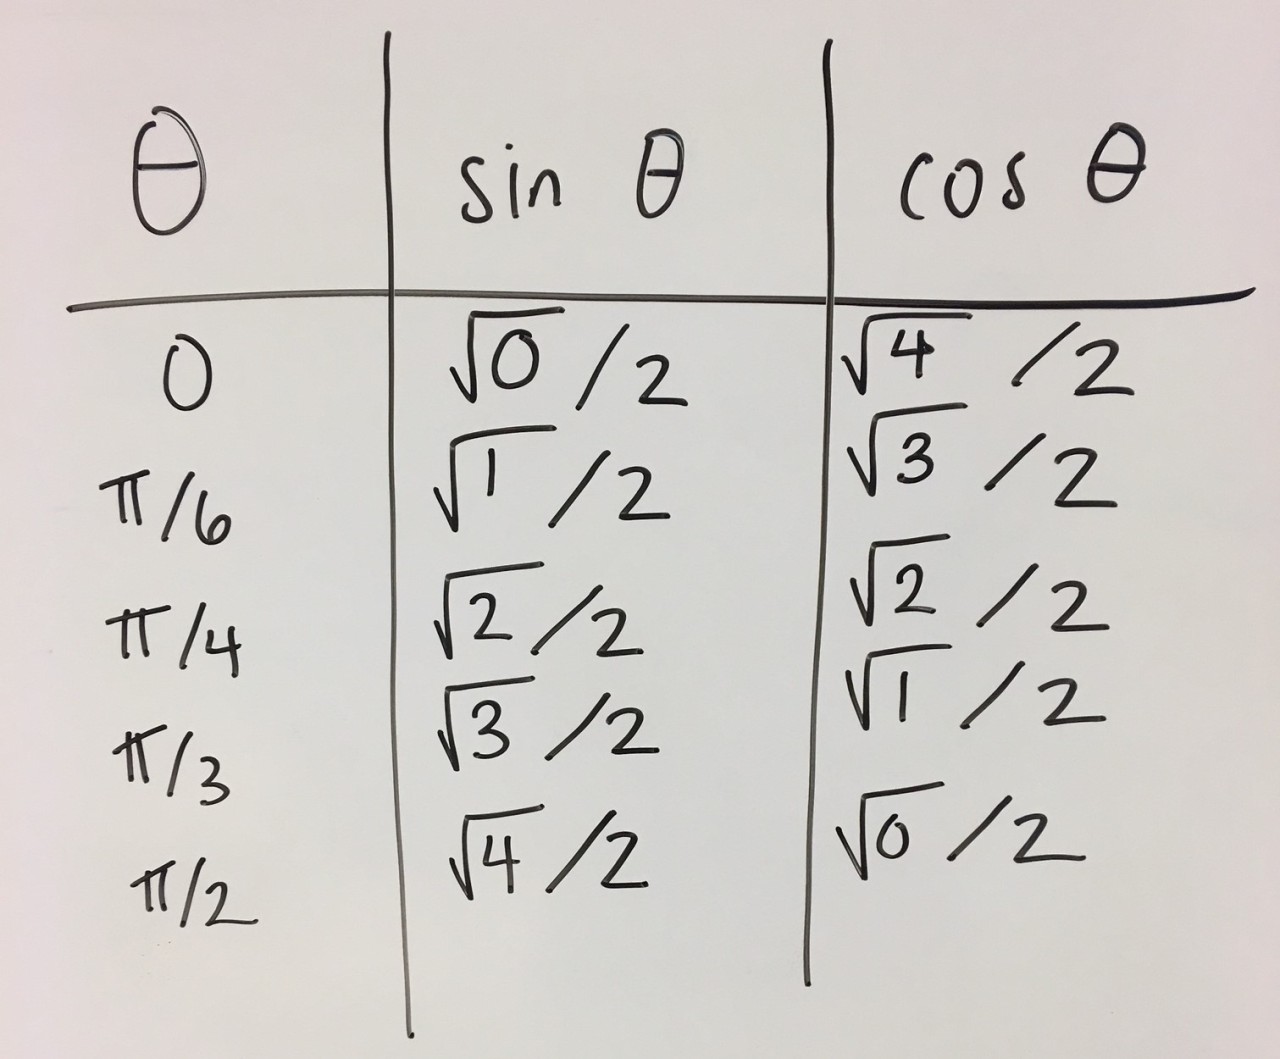 θ sin θ cos θ
0 √0 /2 √4 /2
π/6 √1 /2 √3 /2
π/4 √2 /2 √2 /2
π/3 √3 /2 √1 /2
π/2 √4 /2 √0 /2